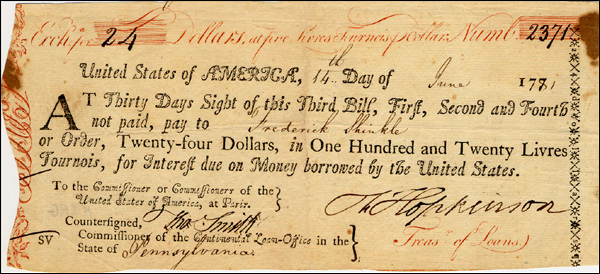 Exch. for 24 Dollars, at five Livres Tournois p Dollar. Numb. 2371
United States of AMERICA, 14th Day of June 1781
AT Thirty Days Sight of this Third Bill, First, Second and Fourth
not paid, pay to Frederick Shinkle
or Order, Twenty-four Dollars, in One Hundred and Twenty Livres
Tournois, for Interest due on Money borrowed by the United States.
To the Commissioner or Commissioners of the
United States of America, at Paris.
Hopkinson
Treasr. of Loans.
Countersigned, Smith
Commissioner of the Continental Loan-Office in the
State of Pennsylvania
SV